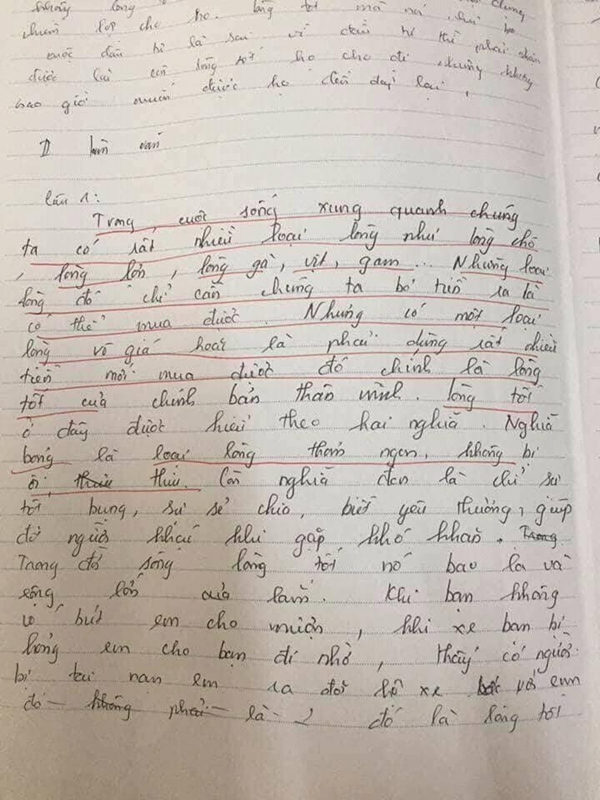 không lòng
chiếm lợi cho họ. lòng tốt mà nó
cuộc đầu tư là sau vì đầu tư thì phải nhận
được lại còn lòng tốt họ cho đi nhưng không
bao giờ muốn được họ đền đáp lại.
II làm văn
Câu 1:
Trong cuộc sống xung quanh chúng
ta có rất nhiều loại lòng như lòng chó
, lòng lơn, lòng gà, vịt, gam... Những loại
lòng đó chỉ cần chúng ta bỏ tiền ra là
có thể mua được. Nhưng có một loại
lòng vô giá hoặc là phải dùng rất nhiều
tiền mới mua được đó chính là lòng
tốt của chính bản thân mình. lòng tốt
ở đây được hiểu theo hai nghĩa. Nghĩa
bóng là loại lòng thơm ngon, không bị
ôi, thiu thiu. Còn nghĩa đen là chỉ sự
tốt bụng, sự sẻ chia, biết yêu thương, giúp
đỡ người khác khi gặp khó khăn. Trong
Trong đời sống lòng tốt nó bao la và
rộng lớn quả lắm. Khi bạn không
có bút em cho mượn, khi xe bạn bị
hỏng em cho bạn đi nhờ, thấy có người
bị tai nạn em ra đỡ lô xe với em
đó không phải là ? đó là lòng tốt